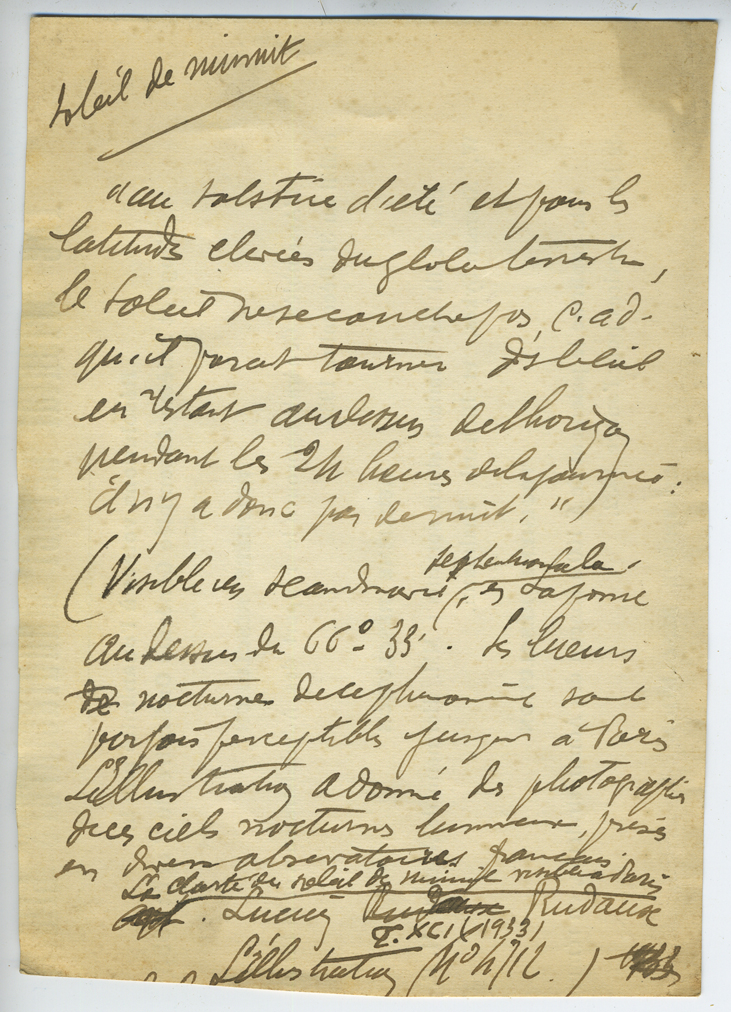 soleil de minuit
"au solstice d'été et pour les
latitudes élevées du globe terrestre,
le soleil ne se couche pas, c.à.d-
qu'il parait tourner
en restant au dessus de l'horizon
pendant les 24 heures de la journée :
il n'y a donc pas de nuit. "
septentrionale
(Visible en Scandinavie, en Laponie
au dessus du 66° 33'. Les lueurs
nocturnes de ce phénomène sont
parfois perceptibles jusque à Paris
L'Illustration a donné des photographies
de ces ciels nocturnes lumineux, prises
en divers observatoires français.
La clarté du soleil de minuit visible à Paris
Lucien Rudaux
T. XCI (1933)
L'Illustration (N° 4712. )